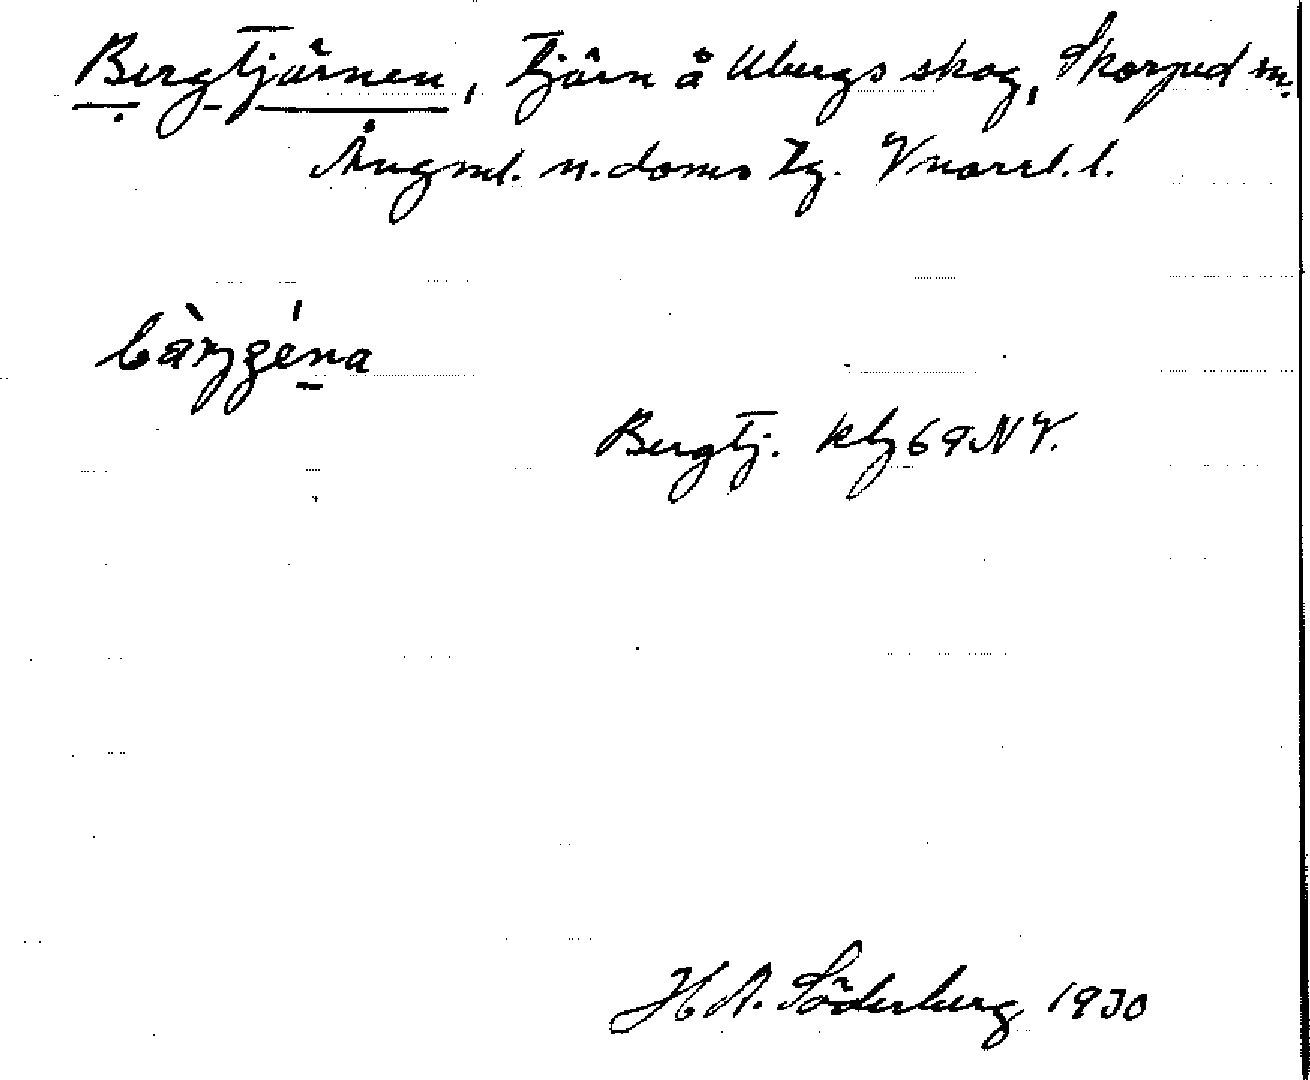 Bergtjärnen, Tjärn å Ubergs skog, Skorped sn.
Ångml. n. doms Tg. Vnorrl. l.
Bergtj. kbl 69 NV.
H.A. Söderberg 1930